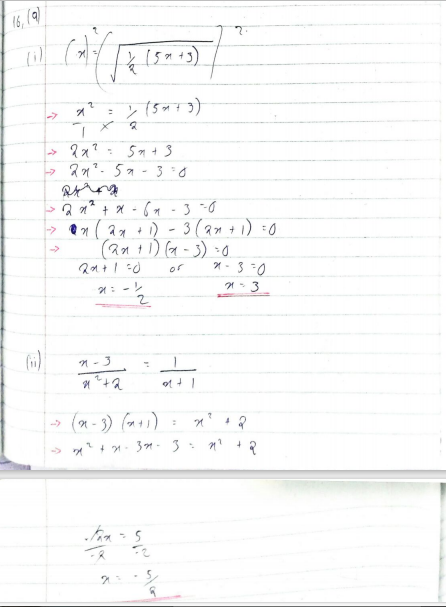 16, (a)
(i) (x)² = (√(1/2 (5x+3)))²
→ x²/1 = 1/2 (5x+3)
→ 2x² = 5x+3
→ 2x² - 5x - 3 = 0
→ 2x² + x - 6x - 3 = 0
→ x(2x+1) - 3(2x+1) = 0
→ (2x+1)(x-3) = 0
2x+1 = 0 or x-3 = 0
x = -1/2 x = 3
(ii) x-3/x²+2 = 1/x+1
→ (x-3)(x+1) = x² + 2
→ x² + x - 3x - 3 = x² + 2
-2x/-2 = 5/-2
x = -5/2